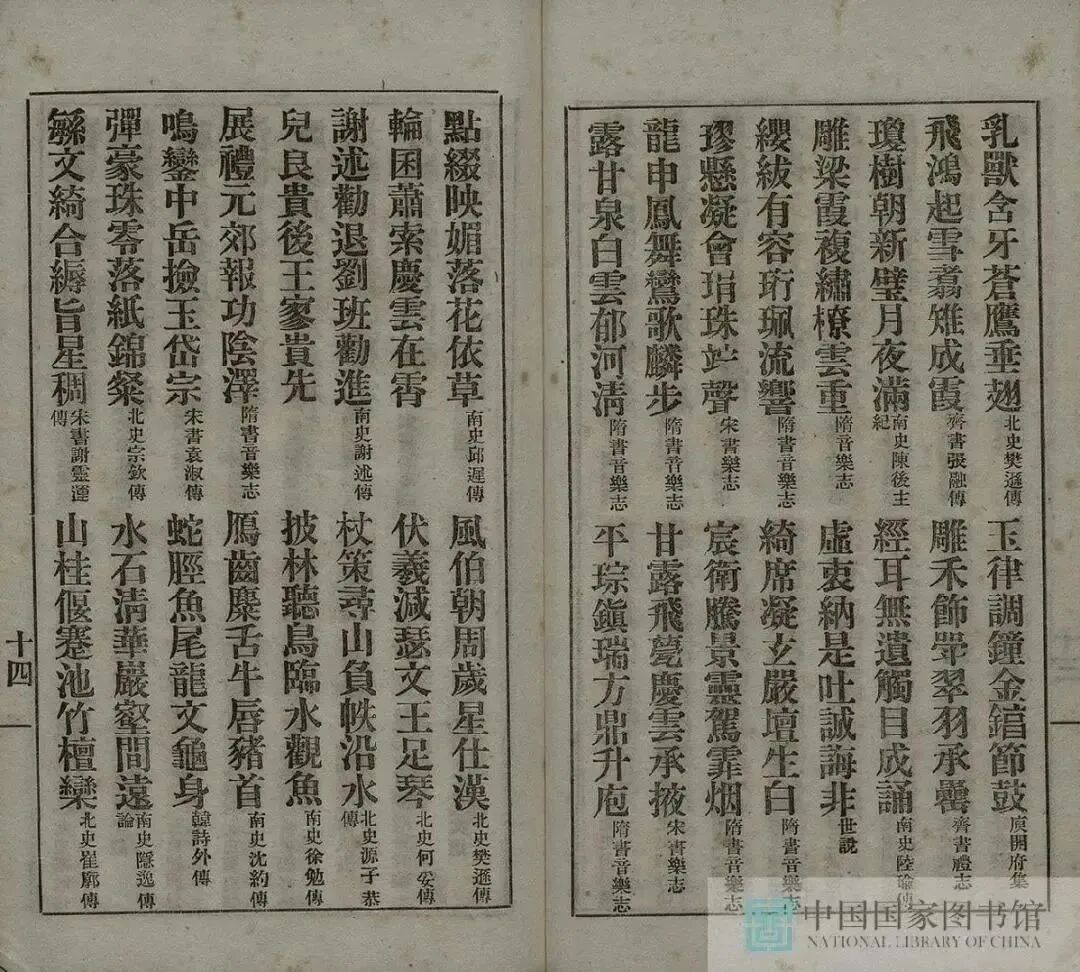 乳獸含牙蒼鷹垂翅北史樊遜傳 玉律調鐘金錧節鼓庾開府集
飛鴻起雪翥雉成霞齊書張融傳 雕禾飾斝翠羽承罍齊書禮志
瓊樹朝新璧月夜滿南史陳後主紀 經耳無遺觸目成誦南史陸瑜傳
雕梁霞複繡橑雲重隋音樂志 虛衷納是吐誠誨非世說
纓紱有容珩珮流響隋書音樂志 綺席凝玄嚴壇生白隋書音樂志
璆懸凝會琄珠竚聲宋書樂志 宸衛騰景靈駕霏烟隋書音樂志
龍申鳳舞鸞歌麟步隋書音樂志 甘露飛甍慶雲承掖宋書樂志
露甘泉白雲郁河淸隋書音樂志 平琮鎭瑞方鼎升庖隋書音樂志
點綴映媚落花依草南史邱遲傳 風伯朝周歲星仕漢北史樊遜傳
輪囷蕭索慶雲在霄 伏羲減瑟文王足琴北史何妥傳
謝述勸退劉班勸進南史謝述傳 杖策尋山負帙沿水北史源子恭傳
兒良貴後王寥貴先 披林聽鳥臨水觀魚南史徐勉傳
展禮元郊報功陰澤隋書音樂志 鴈齒麋舌牛唇豬首南史沈約傳
鳴鑾中岳撿玉岱宗宋書袁淑傳 蛇脛魚尾龍文龜身韓詩外傳
彈豪珠零落紙錦粲北史宗欽傳 水石淸華巖壑間遠南史隱逸傳論
緐文綺合縟旨星稠宋書謝靈運傳 山桂偃蹇池竹檀欒北史崔廓傳
十四
中国国家图书馆
NATIONAL LIBRARY OF CHINA